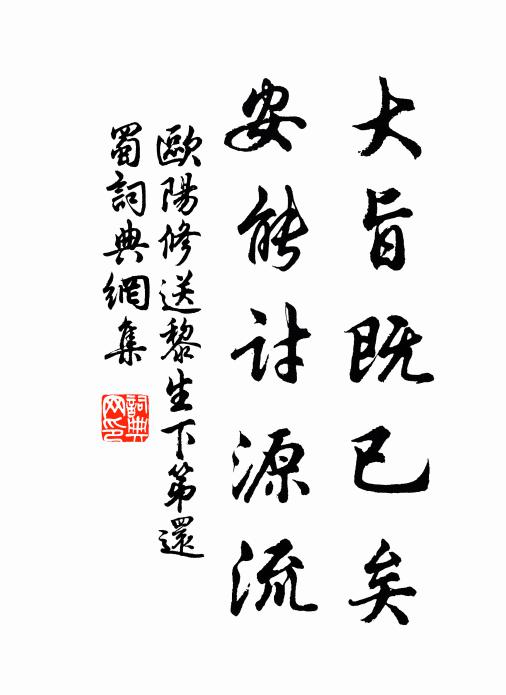 大旨既已矣
安能討源流
歐陽修送黎生下第還
蜀詞典網集
詞典
网印